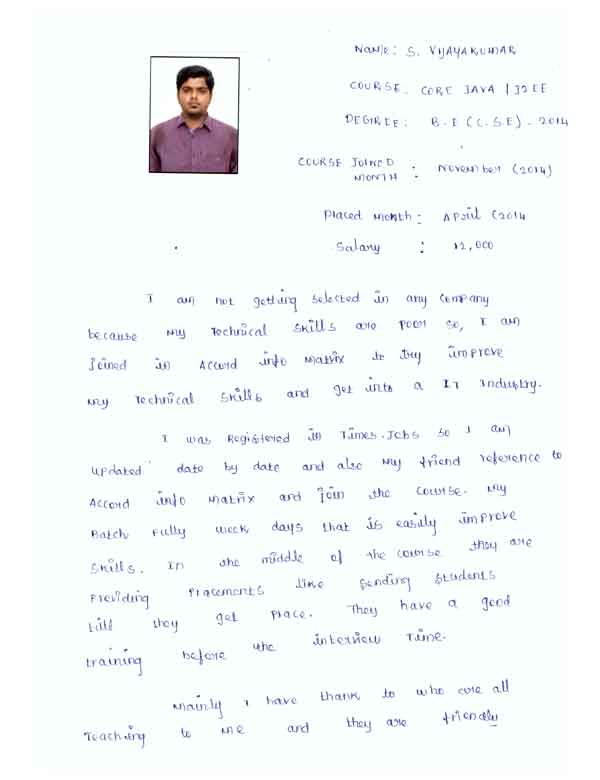 Name: S. VIJAYAKUMAR
COURSE. CORE JAVA | J2EE
DEGREE: B.E (C.S.E). 2014
COURSE JOINED
MONTH : November (2014)
Placed Month: April (2014
Salary : 12,000
I am not getting selected in any company
because my Technical skills are poor so, I am
joined in Accord info Matrix to try improve
my Technical skills and get into a IT Industry.
I was Registered in Times.Jobs so I am
updated date by date and also my friend reference to
Accord info Matrix and join the course. My
Batch fully week days that is easily improve
skills. In the middle of the course they are
Providing Placements like sending students
till they get place. They have a good
training before the interview Time.
Mainly I have thank to who are all
Teaching to me and they are friendly